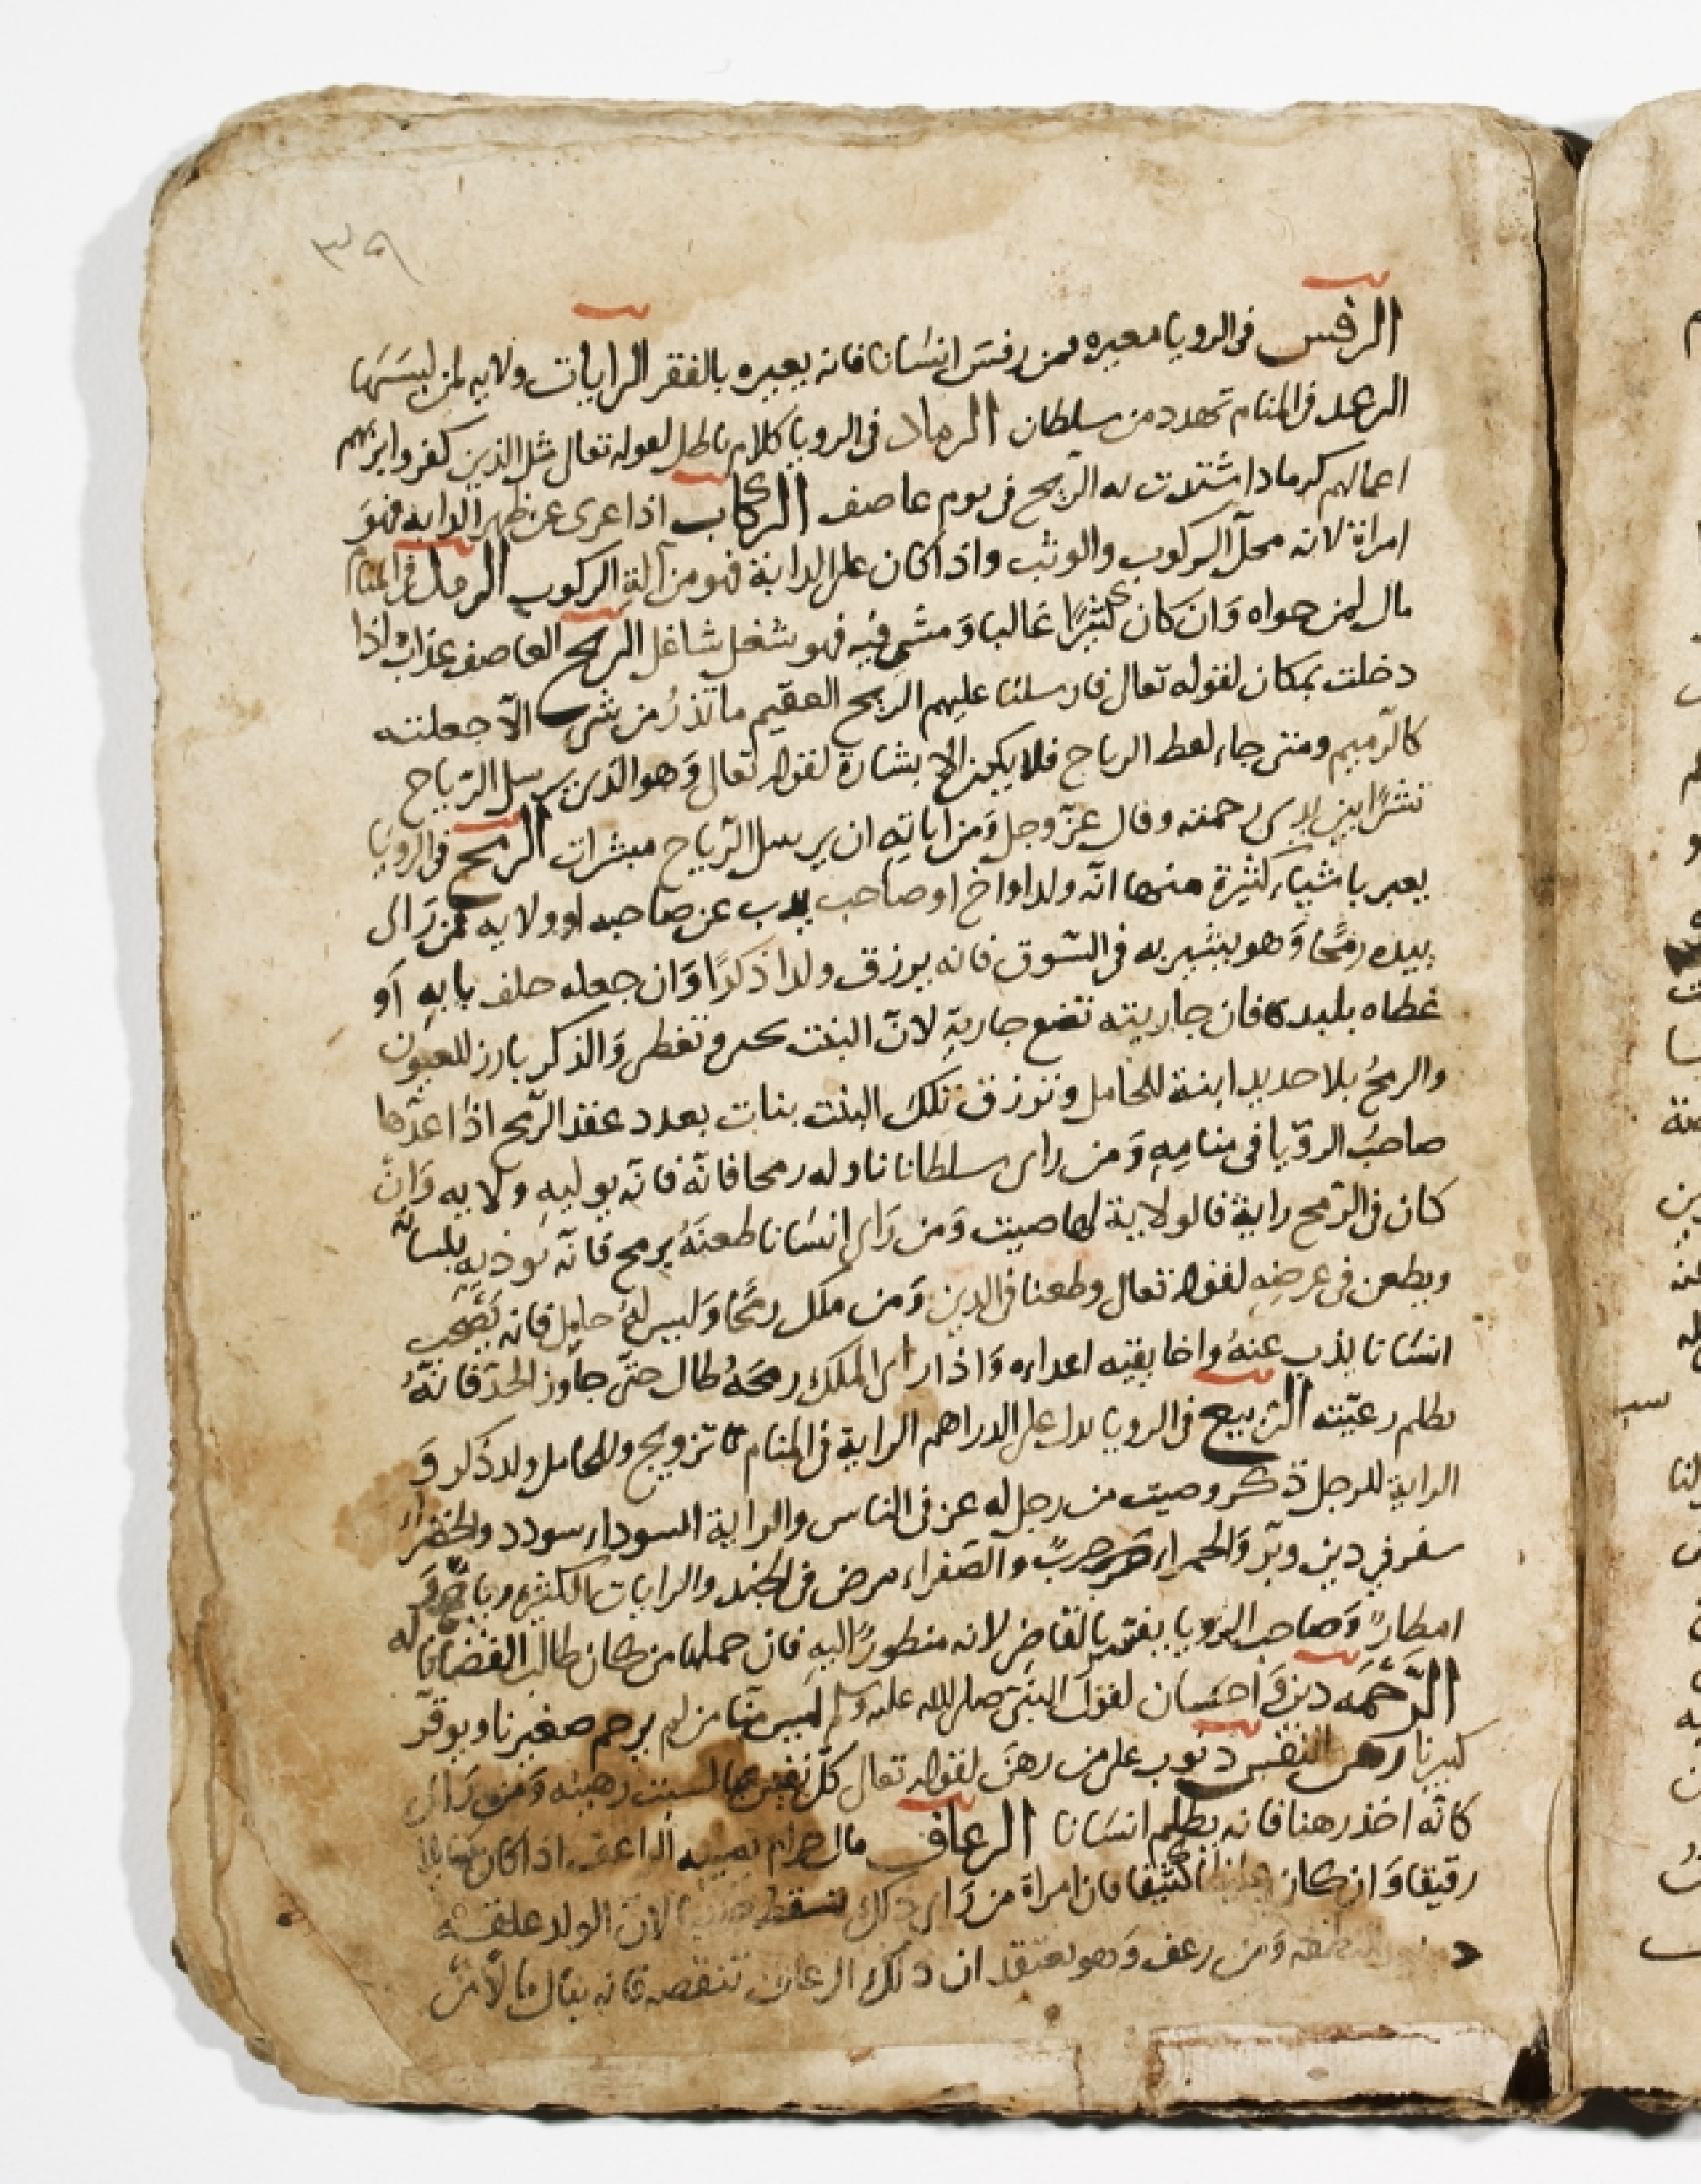 ٣٧٩
الرفس في الرويا معيره فمن رفس انسانا فانه يعيره بالفقر الرايات ولايه لمن لبسها
الرعد في المنام تهدد من سلطان الرماد في الرويا كلام باطل لقوله تعالى مثل الذين كفروا بربهم
اعمالهم كرماد اشتدت به الريح في يوم عاصف الركاب اذا عرى عن ظهر الدابه فهو
امراة لانه محل الركوب والوثب واذا كان على الدابة فهو من آلة الركوب الرمل في المنام
مال لمن حواه وان كان كثيرًا غالبا ومشى فيه فهو شغل شاغل الريح العاصف عذاب اذا
دخلت بمكان لقوله تعالى فارسلنا عليهم الريح العقيم ما تذرُ من شي الّا جعلته
كالرّميم ومتى جاء لفظ الرياح فلا يكون الا بشارة لقوله تعالى وَهو الذي يرسل الرّياح
نشرًا بين يدي رحمته وقال عزّ وجل وَمن اياته ان يرسل الرّياح مبشرات الرمح في الرويَا
يعبر باشياء كثيرة منها انّه ولد او اخ او صاحب يذب عن صاحبه او ولايه فمن رَاى
بيده رمحًا وَهو يشهر به في السّوق فانه يرزق ولدا ذكرًا وَان جعله خلف بابهِ اَو
غطاه بلبده فان جاريته تضع جارية لانّ البنت تخدر وتغطى وَالذكر بارز للعيون
والرمحُ بلا حديد ابنة للحامل وترزق تلك البنت بنات بعدد عقد الرّمح اذا عدّها
صاحبُ الرؤيا في منامِهِ وَمن راى سلطانا ناوله رمحا فانّه فانّه يوليهِ ولايه وَانّ
كان في الرّمح راية فالولاية لها صيت وَمن رَاى انسَانا طعنَهُ برمح فانّه يوذيهِ بلسانه
ويطعن في عرضِهِ لقوله تعالى وطعنا في الدين وَمن ملك رمحًا وَليس لهُ حامِل فانه يَصْحَب
انسَانا يذب عنهُ واخا يقيه اعداءه وَاذا راى الملك رمحَهُ طال حتّى جاوز الحدّ فانّهُ
يظلم رعيّته الربيع في الرويا يدل على الدراهم الراية في المنام تزويج وللحامل ولد ذكر وَ
الراية للرجل ذكر وصيت من رجل له عز في الناس والراية السوداء سودد والخضراء
سفر في دين وبرّ وَالحمراء حربٌ والصفراء مرض في الجند والرايات الكثيرة رياح وَ
امطارٌ وَصاحب الرويا يفتقر بالقاضي لانه منظورٌ اليهِ فان حملها من كان طالب القضا ناله
الرَّحْمَه دين وَاحسَان لقول النبي صلى الله عليه وسلم ليس منّا من لم يرحم صغيرنا ويوقّر
كبيرنا رهن النفس ذنوب على من رهن لقوله تعالى كلّ نفس بما كسبت رهينه وَمن رَاى
كانّه اخذ رهنا فانه يظلم انسَانا الرعاف مال حرام يصيبه الراعف اذا كان
رقيقا وَان كان غليظا كثيفا فان امراة من رَاى ذلك تسقط لانّ الولد علقه
وَمن رعف وَهو يعتقد ان ذلك الرعاف تنقصه فانه ينال مالًا من